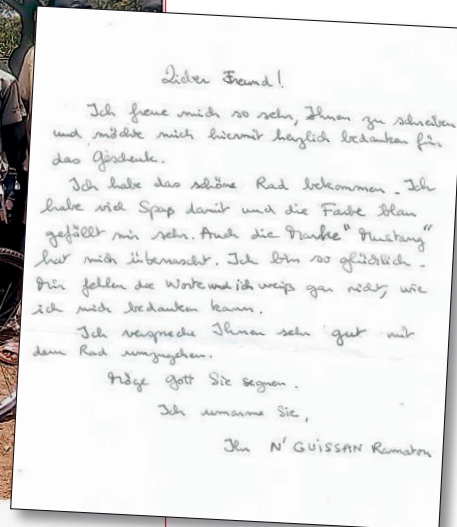 Lieber Freund!
Ich freue mich so sehr, Ihnen zu schreiben
und möchte mich hiermit herzlich bedanken für
das Geschenk.
Ich habe das schöne Rad bekommen. Ich
habe viel Spaß damit und die Farbe blau
gefällt mir sehr. Auch die Marke "Mustang"
hat mich überrascht. Ich bin so glücklich.
Mir fehlen die Worte und ich weiß gar nicht, wie
ich mich bedanken kann.
Ich verspreche Ihnen sehr gut mit
dem Rad umzugehen.
Möge Gott Sie segnen.
Ich umarme Sie,
Ihr N'GUISSAN Ramaton